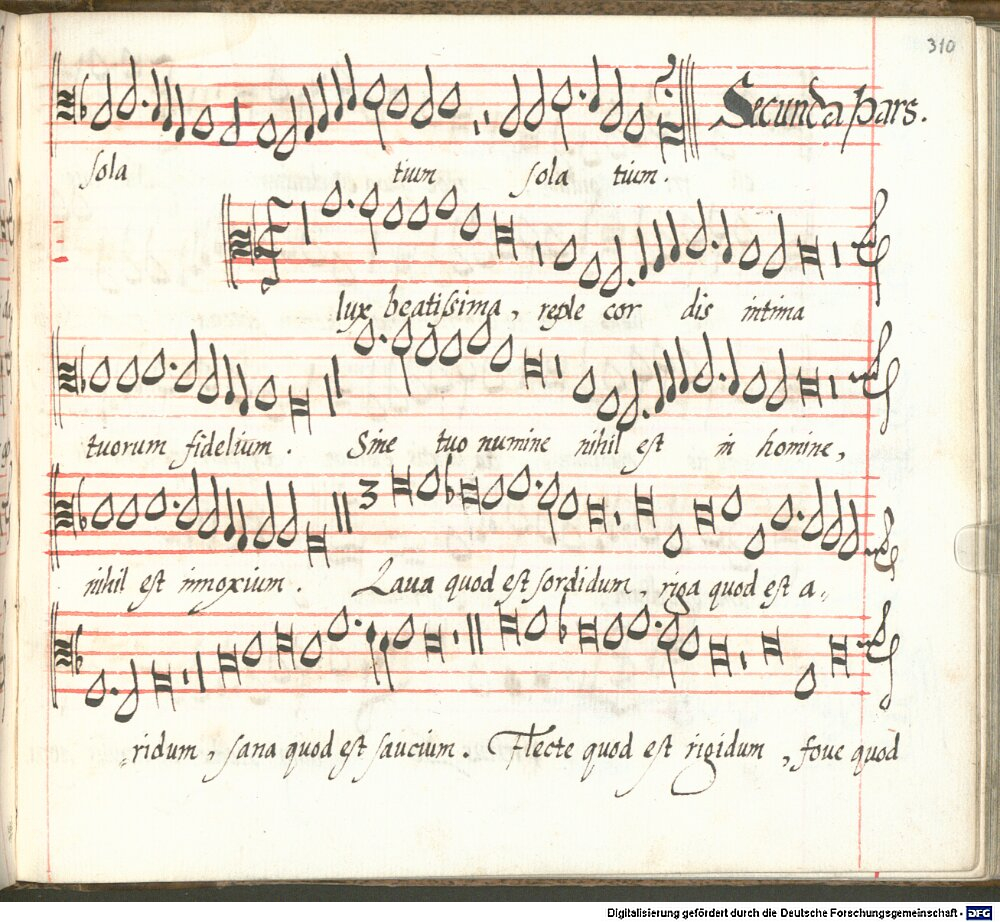 310
Secunda pars.
sola tium sola tium.
lux beatissima, reple cor dis intima
tuorum fidelium. Sine tuo numine nihil est in homine,
3
nihil est innoxium. Laua quod est sordidum, riga quod est a„
„ridum, sana quod est saucium. Flecte quod est rigidum, foue quod
Digitalisierung gefördert durch die Deutsche Forschungsgemeinschaft - DFG